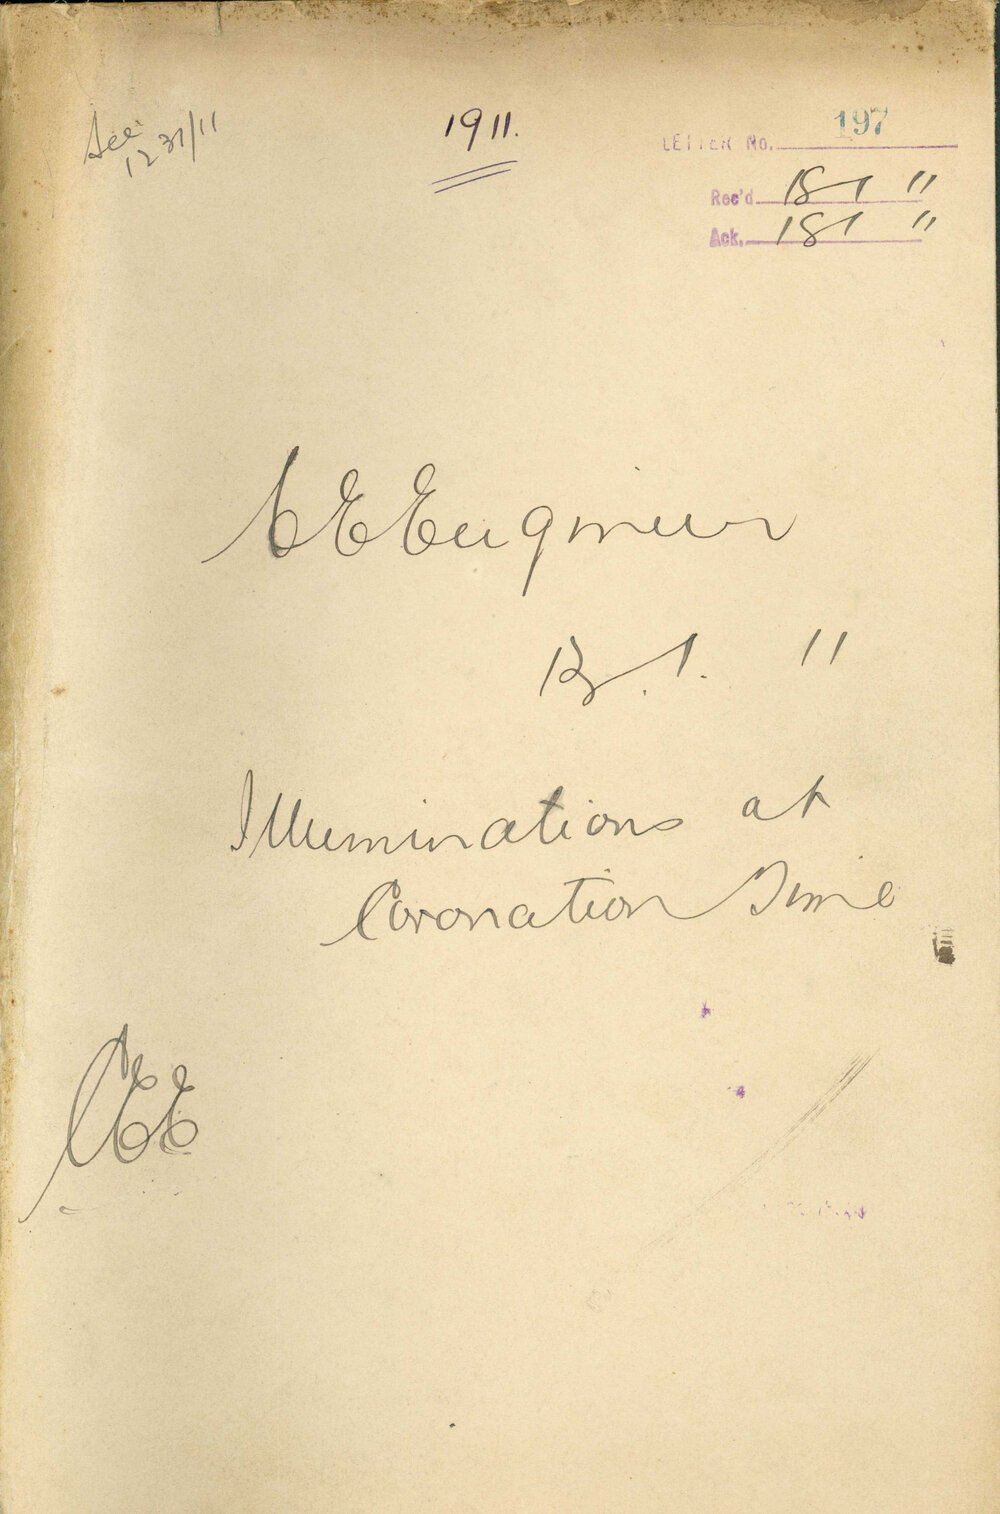 See
1231/11
1911.
LETTER No. 197
Rec'd 18 1 11
Ack. 18 1 11
C E Engineer
13. 1. 11
Illuminations at
Coronation Time
CEE